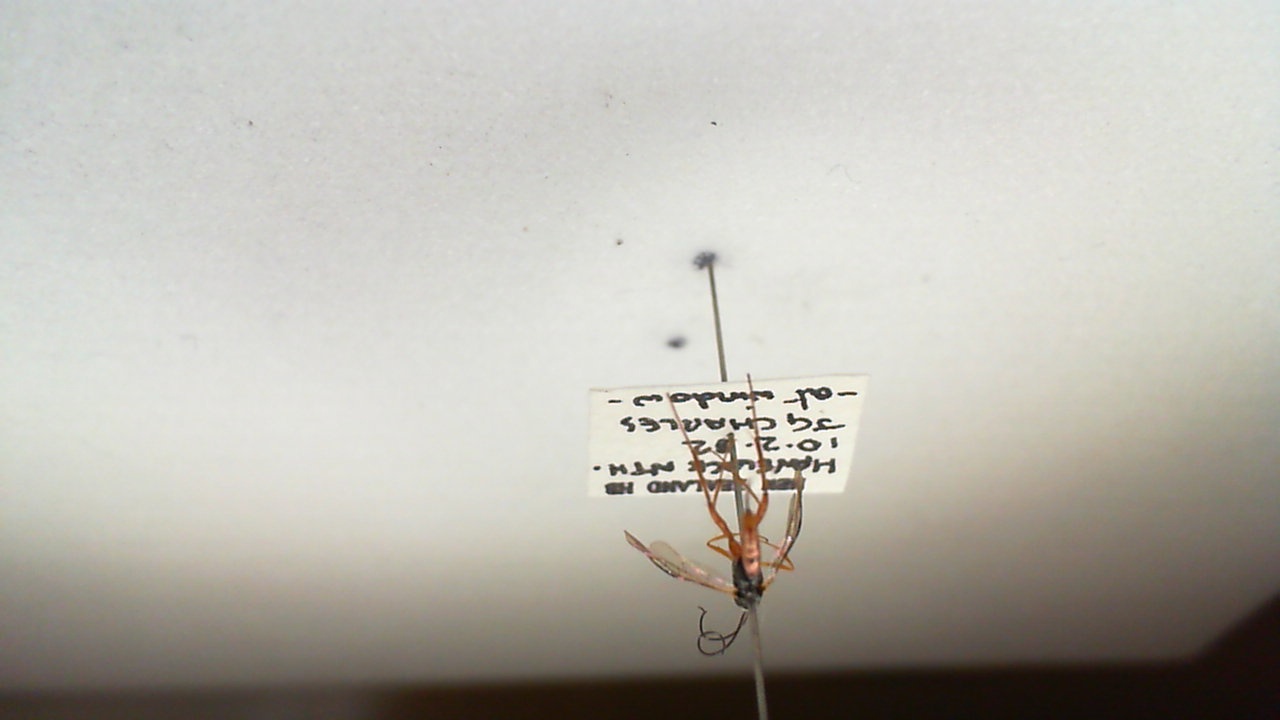 NEW ZEALAND HB
HAVELOCK NTH.
10.2.82
JG CHARLES
- at window -